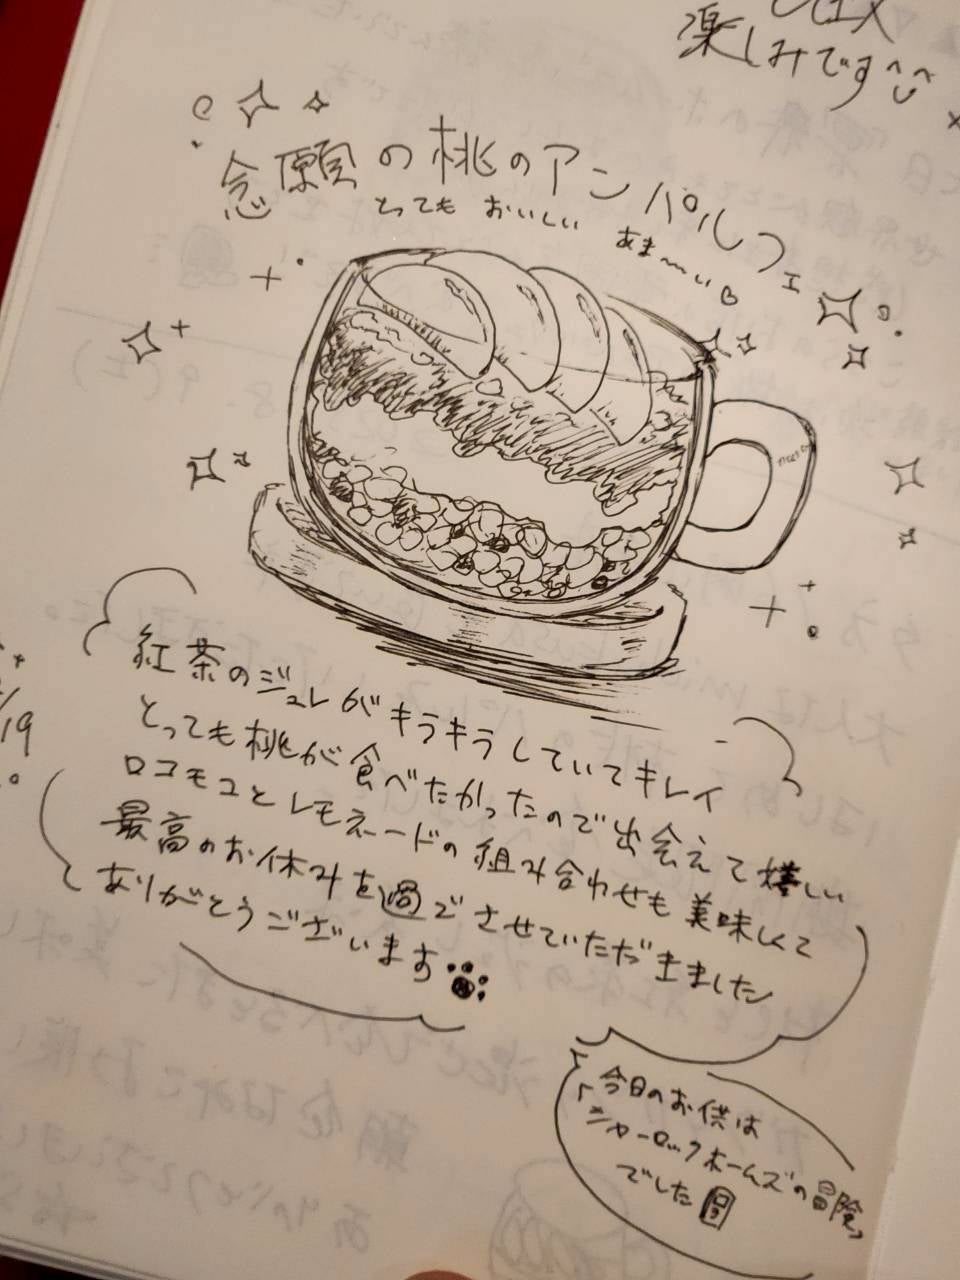 楽しみです^^
念願の桃のアンパルフェ
とっても おいしい あま〜い♡
紅茶のジュレがキラキラしていてキレイ
とっても桃が食べたかったので出会えて嬉しい
ロコモコとレモネードの組み合わせも美味しくて
最高のお休みを過ごさせていただきました
ありがとうございます
/19
今日のお供は
「シャーロックホームズの冒険」
でした